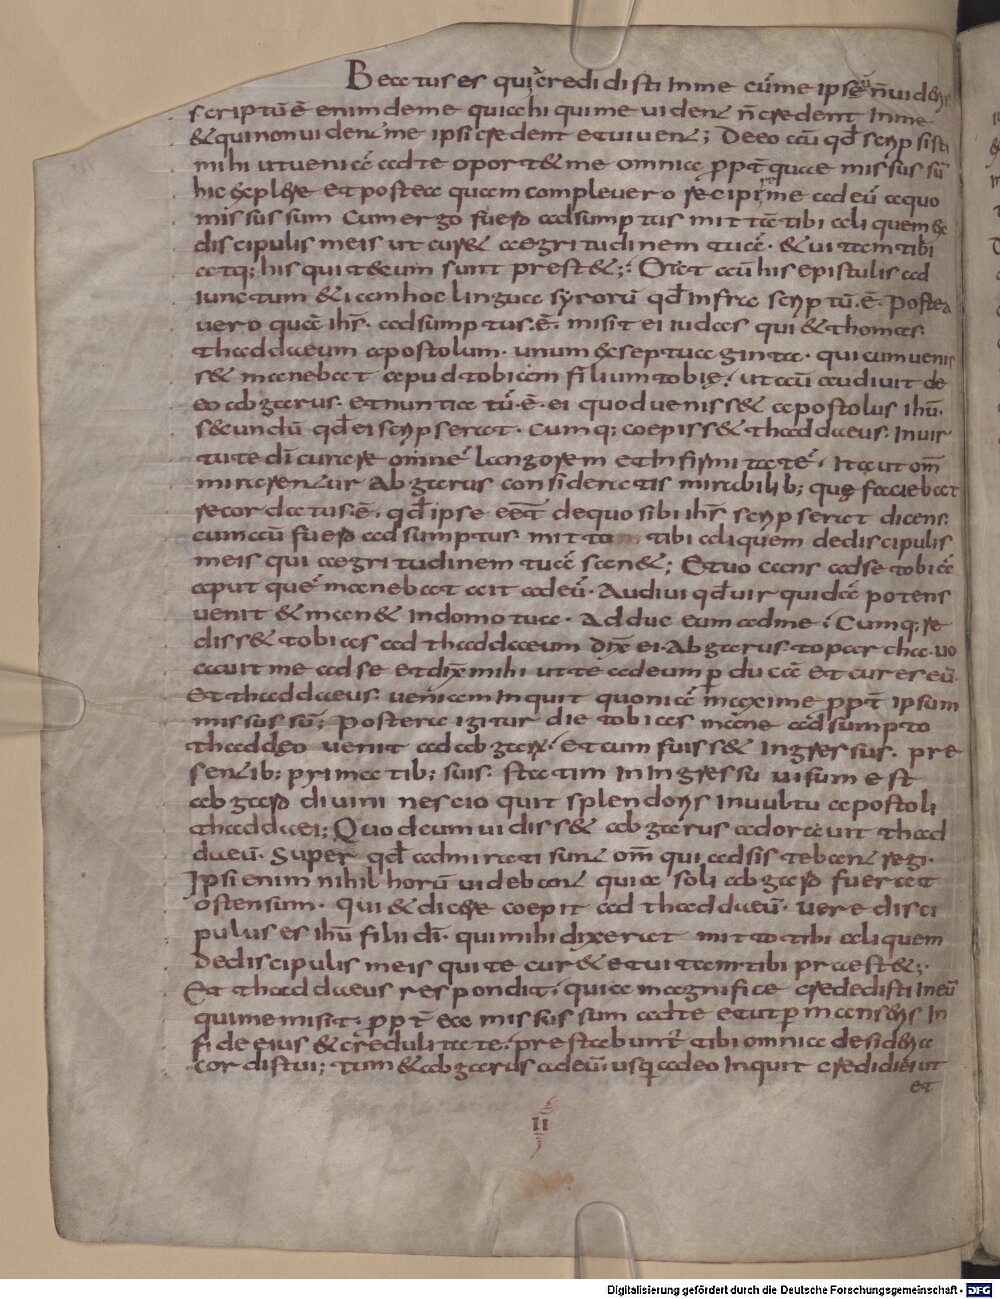 Beatus es qui credidisti in me cū me ipse n̄ videris
scriptū ē enim de me quia hi qui me vident n̄ credent in me
& qui non vident me ipsi credent et vivent; De eo autē qđ scripsisti
mihi ut veniā ad te oportet me omnia ꝓpt̄ quae missus sū
hic explere et postea quam complevero recipi me ad eū a quo
missus sum Cum ergo fuero adsumptus mittā tibi aliquem ex
discipulis meis ut cur& aegritudinem tuā · & vitam tibi
atq; his qui tecum sunt prest&; Erat autē his epistulis ad
iunctum & iam hoc lingua syrorū qđ infra scriptū · ē · Postea
vero quā ih̄s · adsumptus · ē · misit ei iudas qui & thomas ·
thaddaeum apostolum · unum & septuaginta · qui cum venis
s& manebat apud tobiam filium tobię · ut autē audivit de
eo abgarus · et nuntiatū · ē · ei quod veniss& apostolus ih̄u ·
secundū qđ ei scripserat · Cumq; coepiss& thaddaeus · in vir
tute dī curare omnē langorem et infirmitatē · Ita ut om̄
mirarentur Abgarus consideratis mirabilib; quę faciebat
recordatus · ē · qđ ipse eēt de quo sibi ih̄s scripserat dicens
cum autē fuero adsumptus · mittam tibi aliquem de discipulis
meis qui aegritudinem tuā san&; Evocans ad se tobiā
aput quē manebat ait ad eū · Audivi qđ vir quidā potens
venit & man& in domo tua · Adduc eum ad me · Cumq; re
diss& tobias ad thaddaeum dix̄ ei · Abgarus toparcha · vo
cavit me ad se et dix̄ mihi ut te ad eum ꝑducā et cures eū
Et thaddaeus · veniam inquit quoniā maxime ꝓpt̄ ipsum
missus sū; Postera igitur die tobias mane adsumpto
thaddeo venit ad abgarū · et cum fuiss& ingressus · pre
sentib; primatib; suis · statim in ingressu visum est
abgaro divini nescio quit splendoris in vultu apostoli
thaddaei; Quod cum vidiss& abgarus adoravit thad
daeū · Super qđ admirati sunt om̄ qui adsistebant regi ·
Ipsi enim nihil horū videbant quia soli abgaro fuerat
ostensum · qui & dicere coepit ad thaddaeū · Vere disci
pulus es ih̄u filii dī · qui mihi dixerat mitto tibi aliquem
de discipulis meis qui te cur& et vitam tibi praest&;
Et thaddaeus respondit · quia magnifice credidisti in eū
qui me misit · ꝓpt̄ ea missus sum ad te et ut ꝑmanseris in
fide eius & credulitate · prestabunt̄ tibi omnia desideria
cordis tui; tum & abgarus ad eū · usq; adeo inquit credidi ei ut
et
II
Digitalisierung gefördert durch die Deutsche Forschungsgemeinschaft - DFG